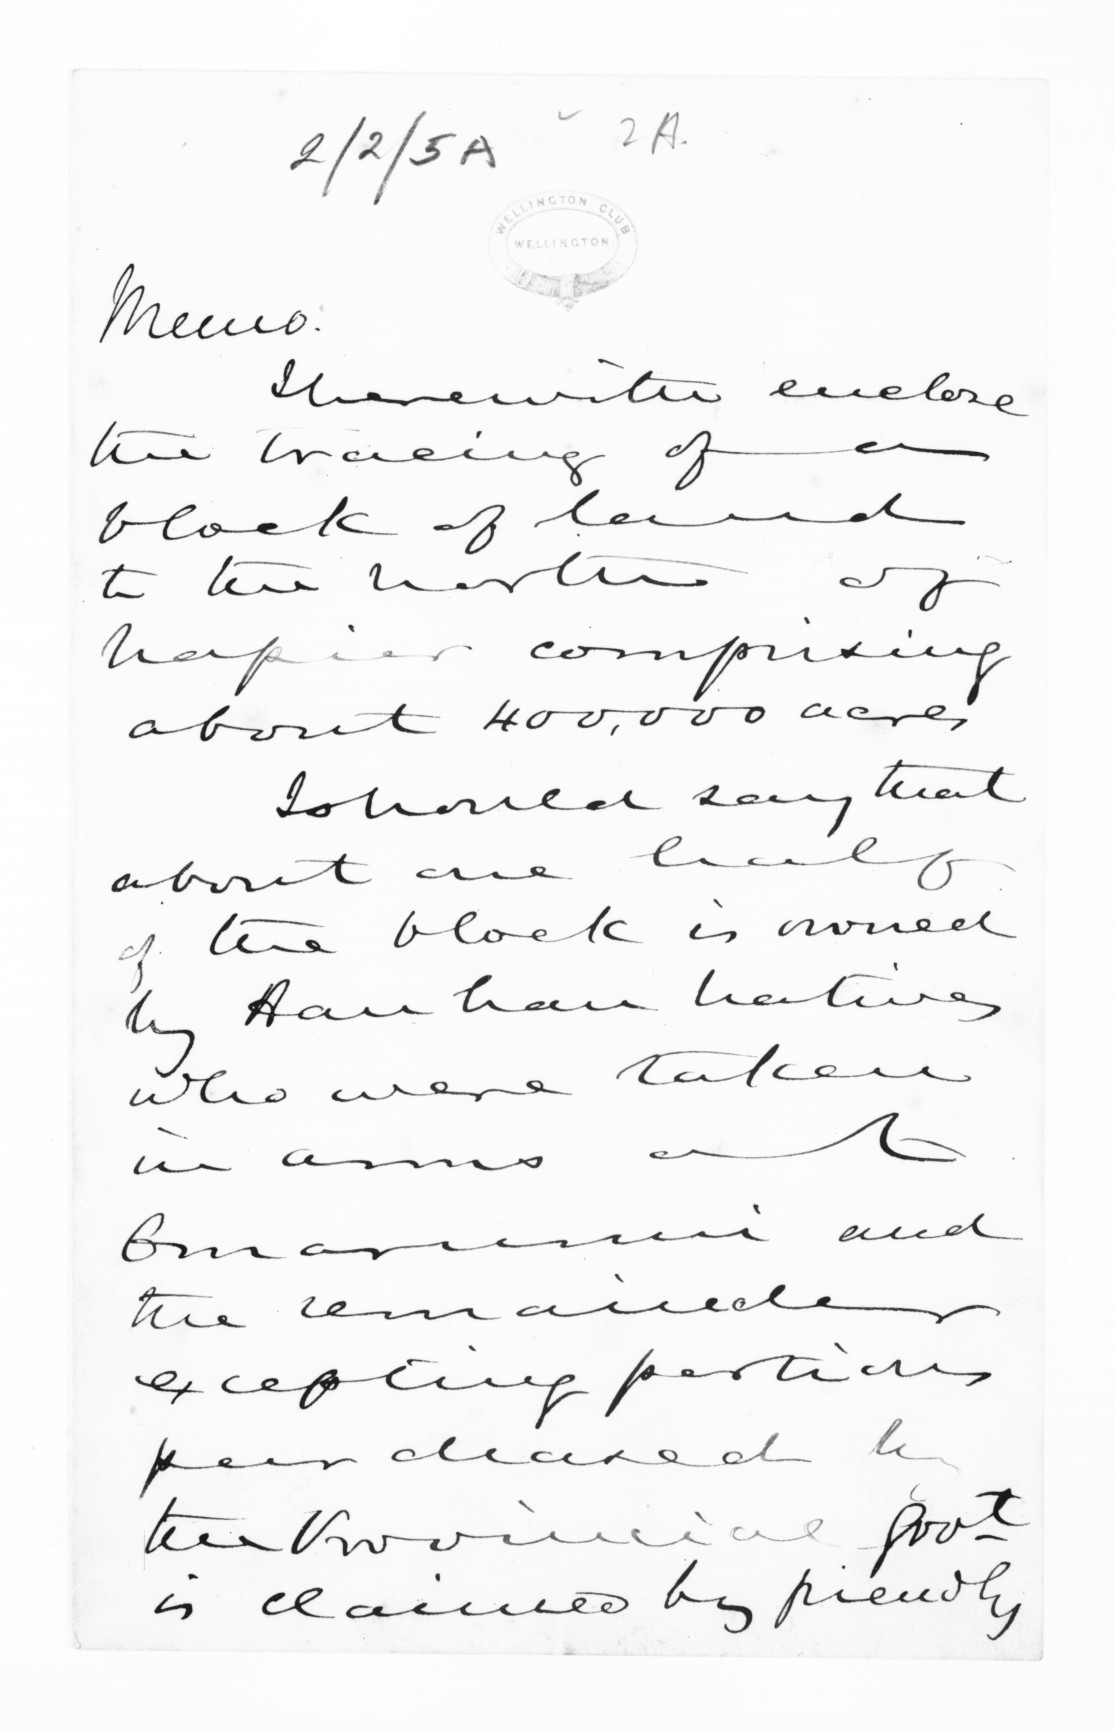 2/2/5A 2A.
WELLINGTON CLUB
WELLINGTON
Memo.
I herewith enclose
the tracing of a
block of land
to the north of
Napier comprising
about 400,000 acres
I should say that
about one half
of the block is owned
by Hau hau natives
who were taken
in arms at
Omarunui and
the remainder
excepting portions
purchased by
the Provincial Govt
is claimed by friendly